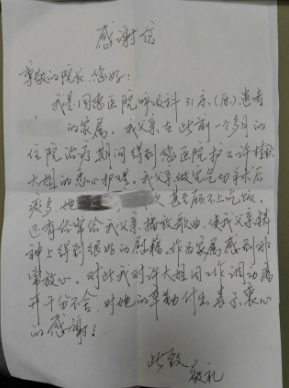 感谢信
尊敬的院长 您好:
我是同德医院呼吸科31床(原)患者
的家属。我父亲在此前一个多月的
住院治疗期间得到您医院护工许
大姐的悉心护理。我父亲做完气切手术后
她 次 甚至顾不上吃饭
还有给常给我父亲播放歌曲,使我父亲精
神上得到很好的慰藉,作为家属感到非
常放心。对此我对许大姐因工作调动离
开十分不舍,对她的辛勤付出表示衷心
的感谢!
此致
敬礼